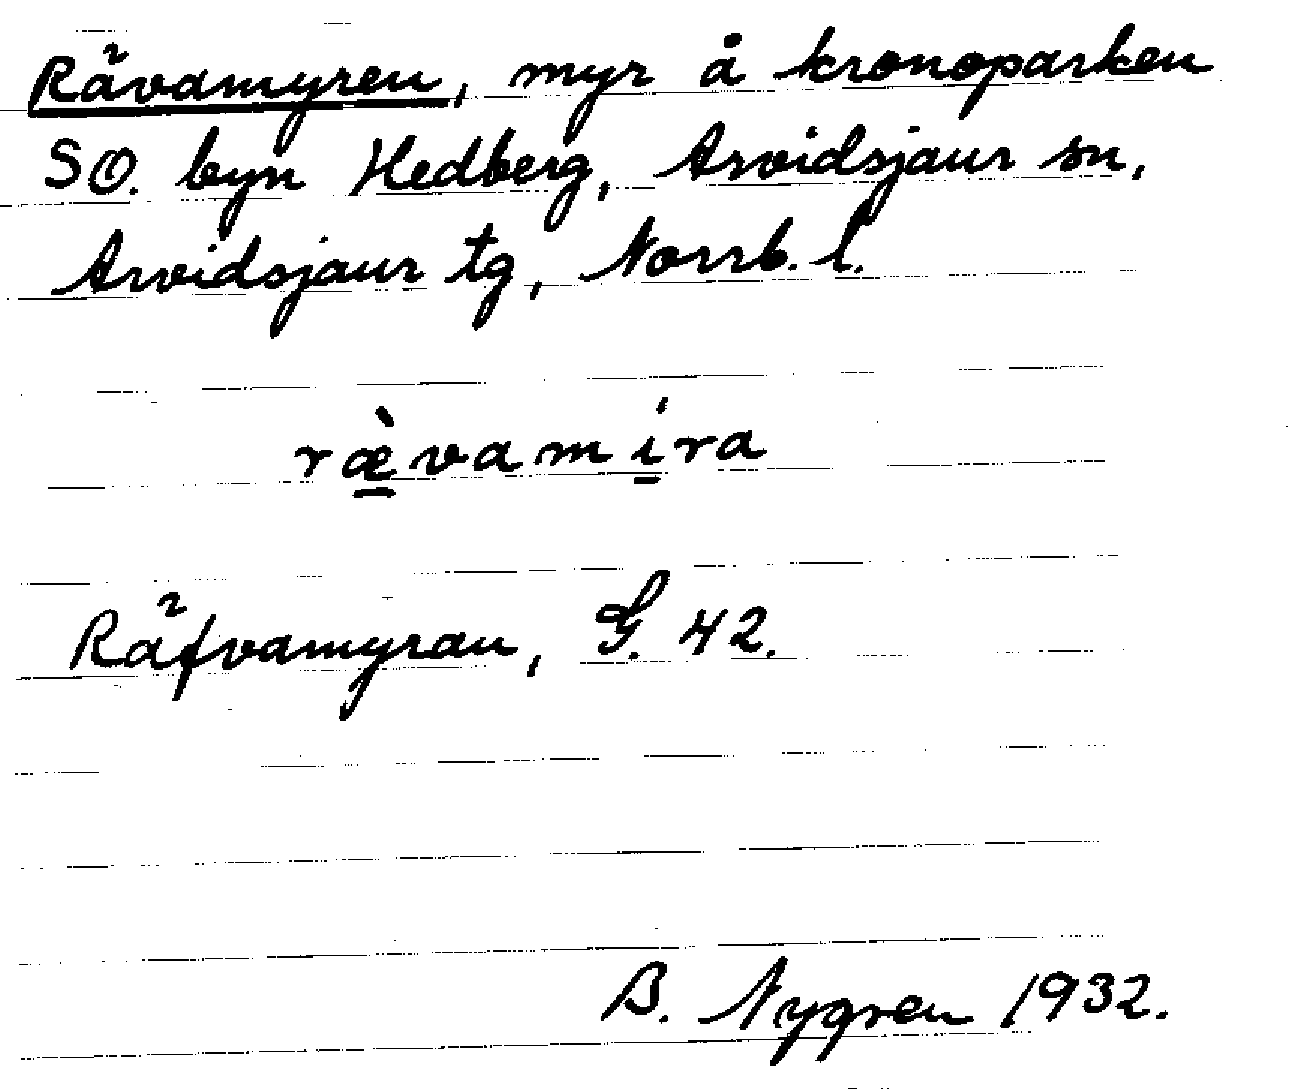 Rävamyren, myr å kronoparken
SO. byn Hedberg, Arvidsjaur sn,
Arvidsjaur tg, Norrb. l.
ræ̲̀vami̲ra
Räfvamyran, G. 42.
B. Nygren 1932.